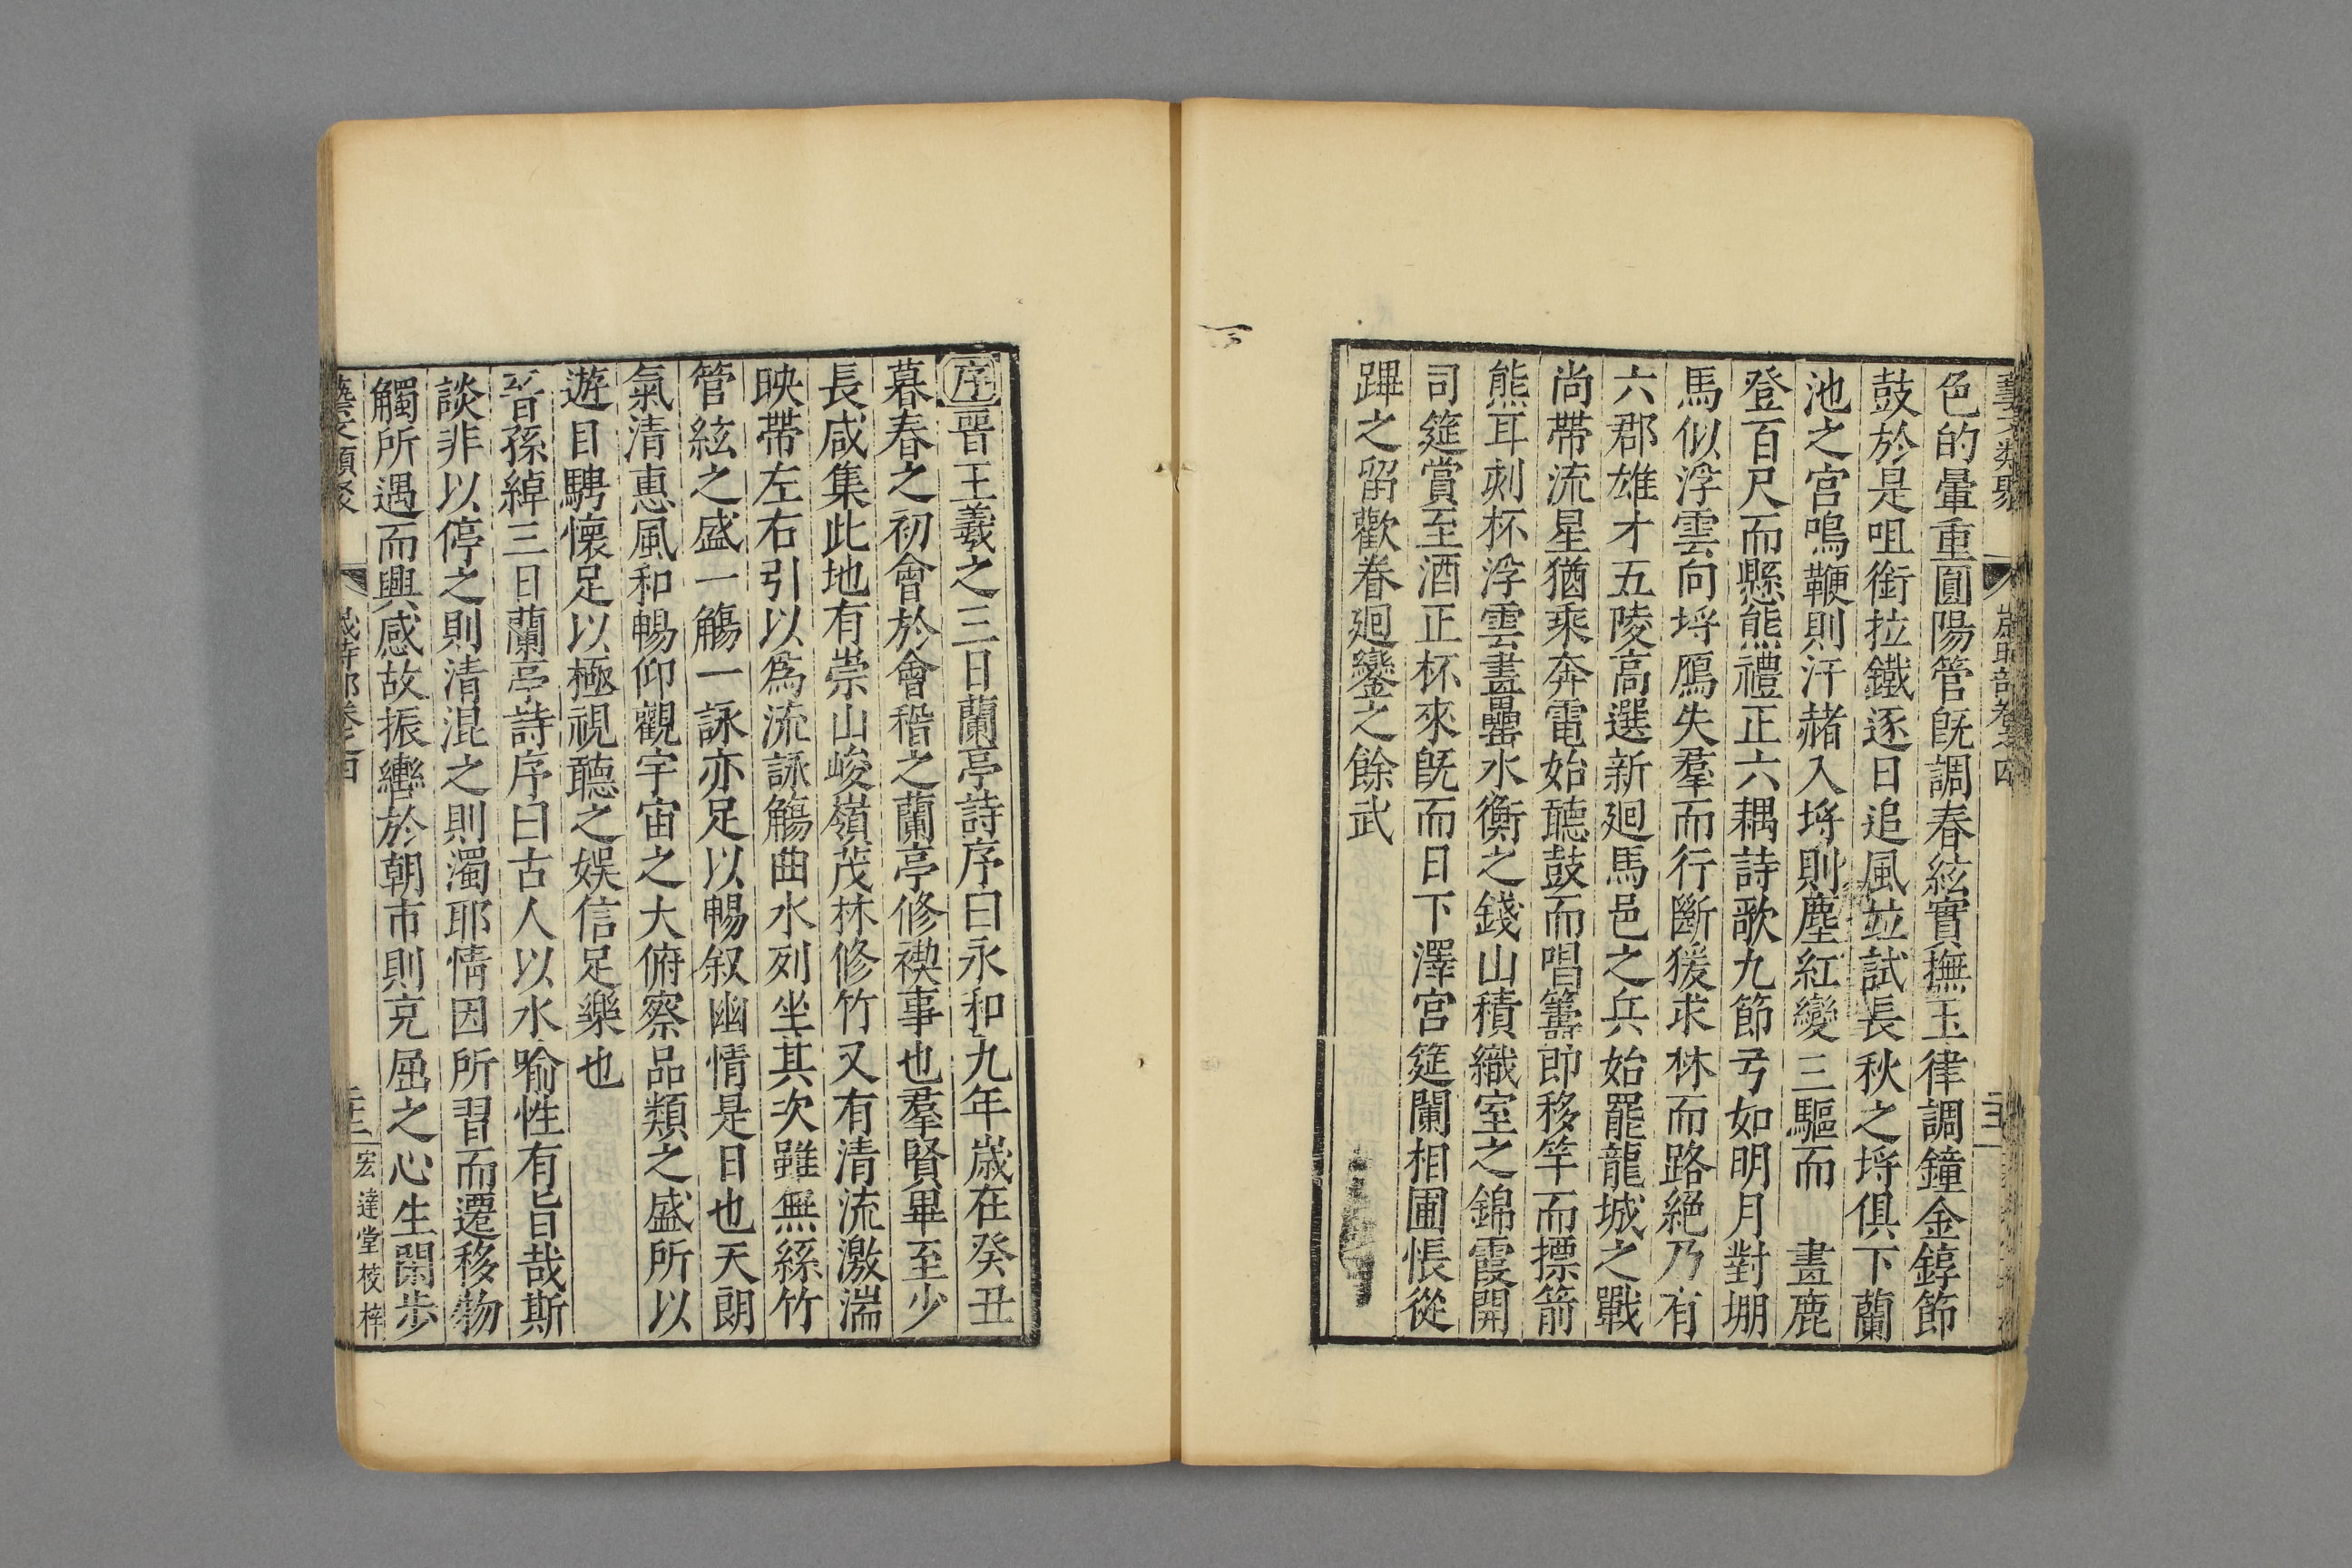 藝文類聚 歲時部卷之四
色的暈重圓陽管旣調春絃實撫玉律調鐘金錞節
鼓於是咀銜拉鐵逐日追風並試長秋之埒俱下蘭
池之宮鳴鞭則汗赭入埒則塵紅變三驅而 畫鹿
登百尺而懸熊禮正六耦詩歌九節弓如明月對堋
馬似浮雲向埒鴈失羣而行斷猨求林而路絕乃有
六郡雄才五陵高選新廻馬邑之兵始罷龍城之戰
尚帶流星猶乘奔電始聽鼓而唱籌卽移竿而摽箭
熊耳刻杯浮雲畫罍水衡之錢山積織室之錦霞開
司筵賞至酒正杯來旣而日下澤宮筵闌相圃悵從
蹕之留歡眷廻鑾之餘武
序晉王羲之三日蘭亭詩序曰永和九年歲在癸丑
暮春之初會於會稽之蘭亭修禊事也羣賢畢至少
長咸集此地有崇山峻嶺茂林修竹又有清流激湍
映帶左右引以爲流詠觴曲水列坐其次雖無絲竹
管絃之盛一觴一詠亦足以暢叙幽情是日也天朗
氣清惠風和暢仰觀宇宙之大俯察品類之盛所以
遊目騁懷足以極視聽之娛信足樂也
晉孫綽三日蘭亭詩序曰古人以水喻性有旨哉斯
談非以停之則清混之則濁耶情因所習而遷移物
觸所遇而興感故振轡於朝市則充屈之心生閑步
藝文類聚 歲時部卷之四 宏達堂校梓